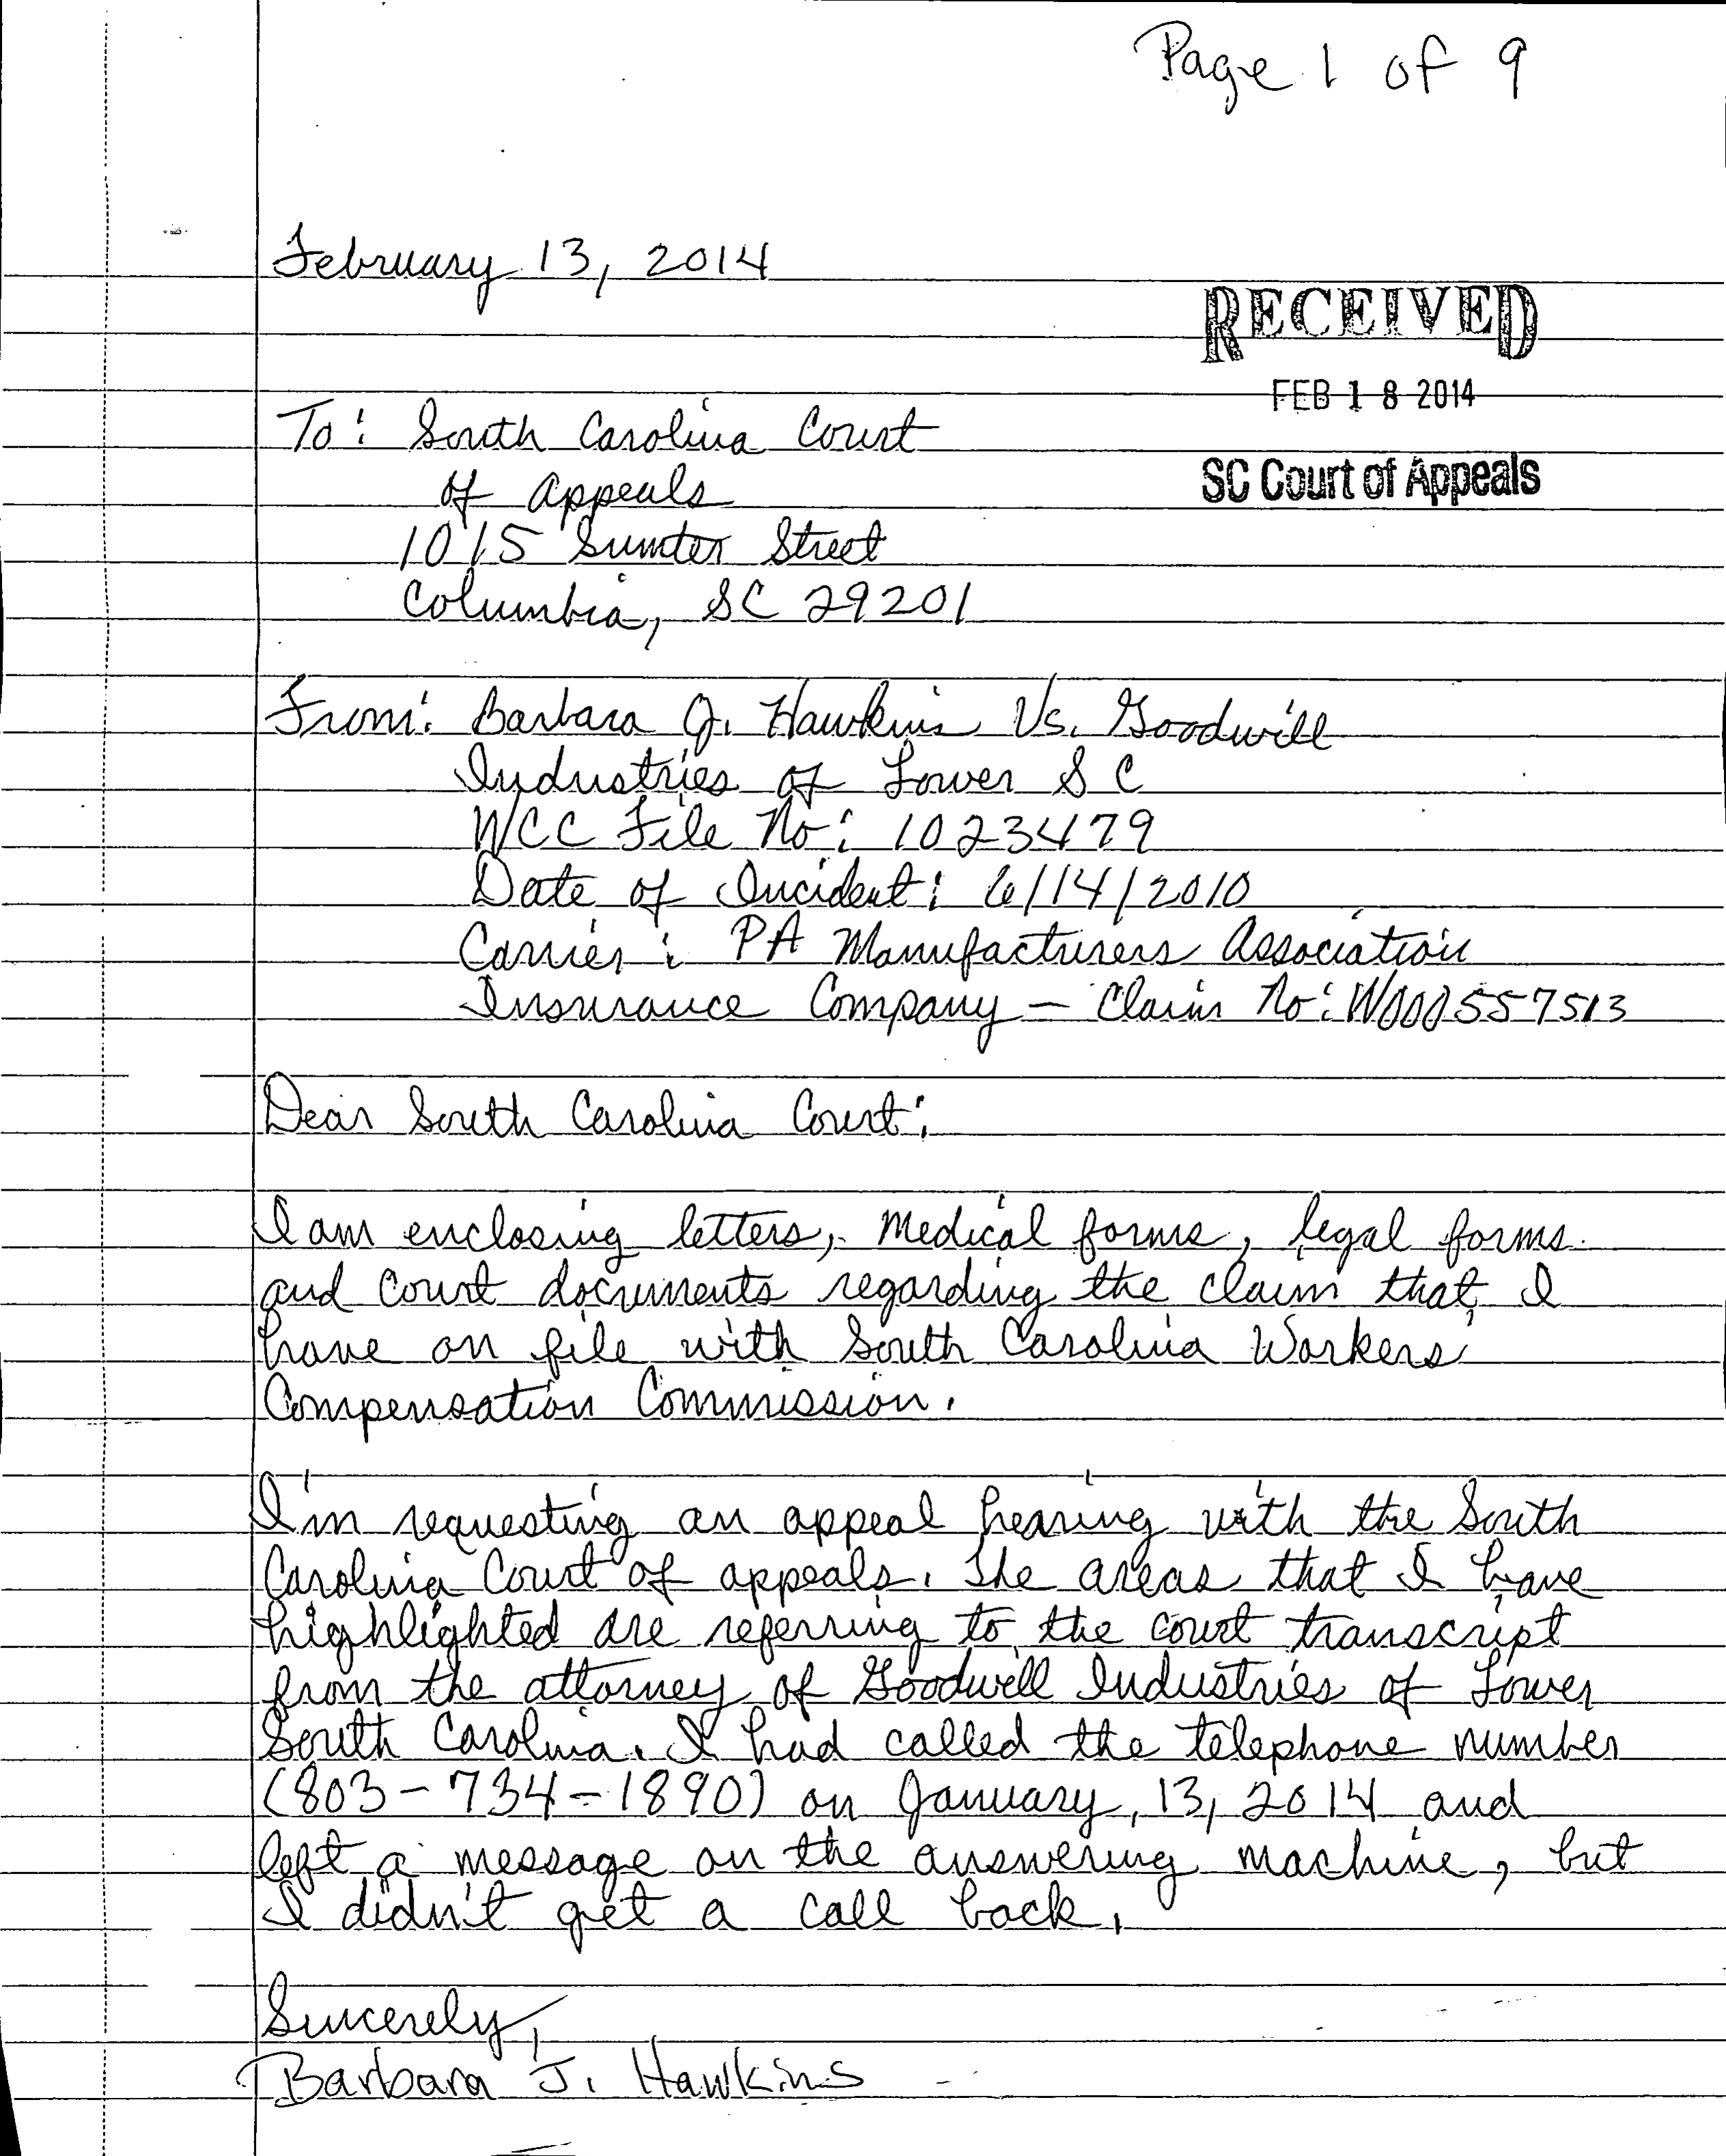 Page 1 of 9
February 13, 2014
RECEIVED
FEB 18 2014
SC Court of Appeals
To: South Carolina Court
of Appeals
1015 Sumter Street
Columbia, SC 29201
From: Barbara J. Hawkins Vs. Goodwill
Industries of Lower S C
WCC File No: 1023479
Date of Incident: 6/14/2010
Carrier: PA Manufacturers Association
Insurance Company - Claim No: W000557513
Dear South Carolina Court:
I am enclosing letters, Medical forms, legal forms
and Court documents regarding the claim that I
have on file with South Carolina Workers'
Compensation Commission.
I'm requesting an appeal hearing with the South
Carolina Court of appeals. The areas that I have
highlighted are referring to the court transcript
from the attorney of Goodwill Industries of Lower
South Carolina. I had called the telephone number
(803-734-1890) on January, 13, 2014 and
left a message on the answering machine, but
I didn't get a call back.
Sincerely,
Barbara J. Hawkins